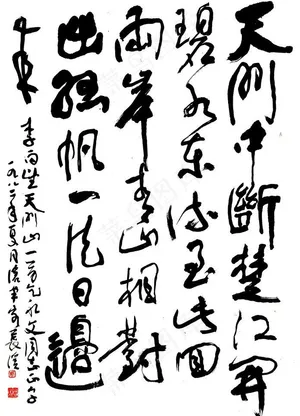 天门中斷楚江開
碧水东流至此回
兩岸青山相對
出孤帆一片日邊
来
李白望天门山一首
一九八二年夏月